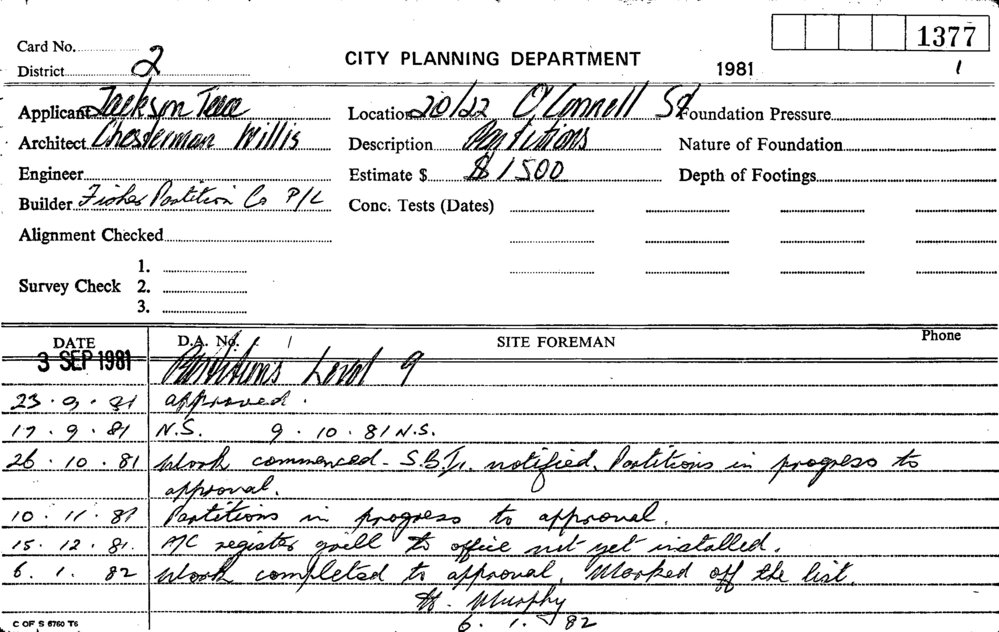 1377
Card No. 2
CITY PLANNING DEPARTMENT
District
1981 1
Applicant Jackson Teece Location 20/22 O'Connell St Foundation Pressure
Architect Chesterman Willis Description Partitions Nature of Foundation
Engineer Estimate $ $1500 Depth of Footings
Builder Fisher Partition Co P/L Conc. Tests (Dates)
Alignment Checked
1.
Survey Check 2.
3.
DATE D.A. No. / SITE FOREMAN Phone
3 SEP 1981 Partitions Level 9
23.9.81 approved.
17.9.81 N.S. 9.10.81 N.S.
26.10.81 Work commenced - S.B.I. notified. Partitions in progress to
approval.
10.11.81 Partitions in progress to approval.
15.12.81. A/C register grill to office not yet installed.
6.1.82 Work completed to approval. Marked off the list.
Murphy
6.1.82
C OF S 6760 T6